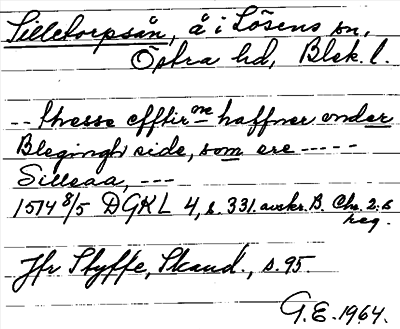 Silletorpsån, å i Lösens sn,
Östra hd, Blek. l.
-- thesse efftirne haffner under
Blegingh side, som ere -----
Silleaa, ---
1514 8/5 DGKL 4, s. 331. avskr. B. Chr. 2:s
reg.
Jfr Styffe, Skand., s. 95.
G.E. 1964.